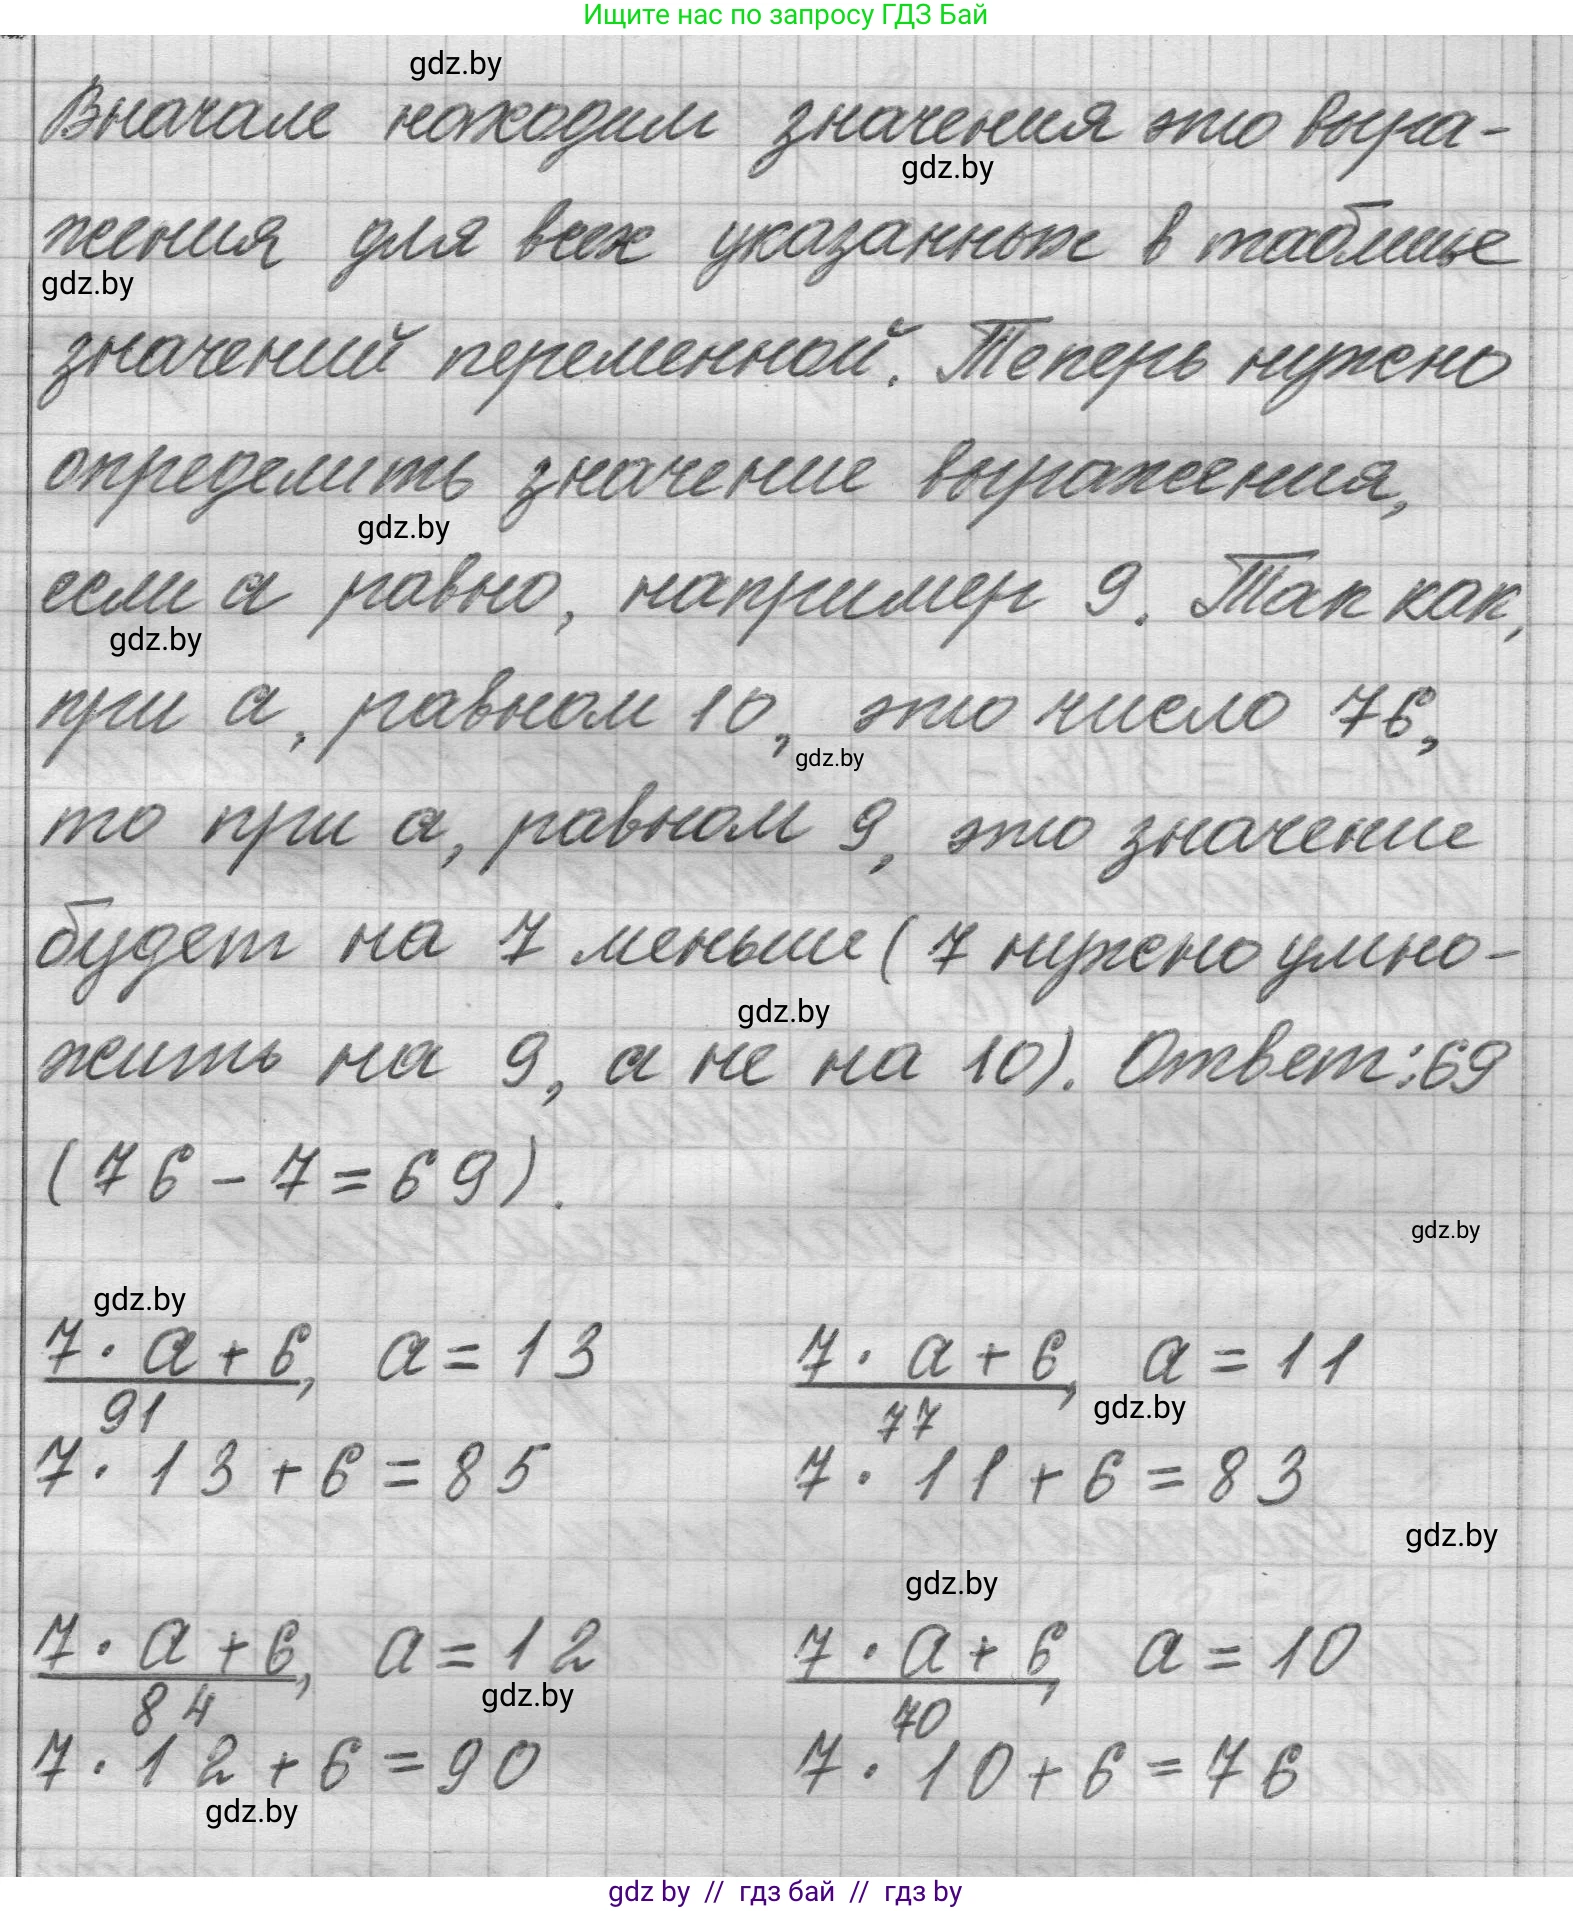 Ищите нас по запросу ГДЗ Бай
gdz.by
Вначале находим значения это выра-
gdz.by
жения для всех указанных в таблице
gdz.by
значений переменной. Теперь нужно
определить значение выражения,
gdz.by
если а равно, например 9. Так как,
gdz.by
при а, равном 10, это число 76,
gdz.by
то при а, равном 9, это значение
будет на 7 меньше (7 нужно умно-
gdz.by
жить на 9, а не на 10). Ответ: 69
(76-7=69).
gdz.by
gdz.by
7·a+6, a=13 7·a+6, a=11
gdz.by
91 77
7·13+6=85 7·11+6=83
gdz.by
gdz.by
7·a+6, a=12 7·a+6, a=10
gdz.by
84 70
7·12+6=90 7·10+6=76
gdz.by
gdz by // гдз бай // гдз by